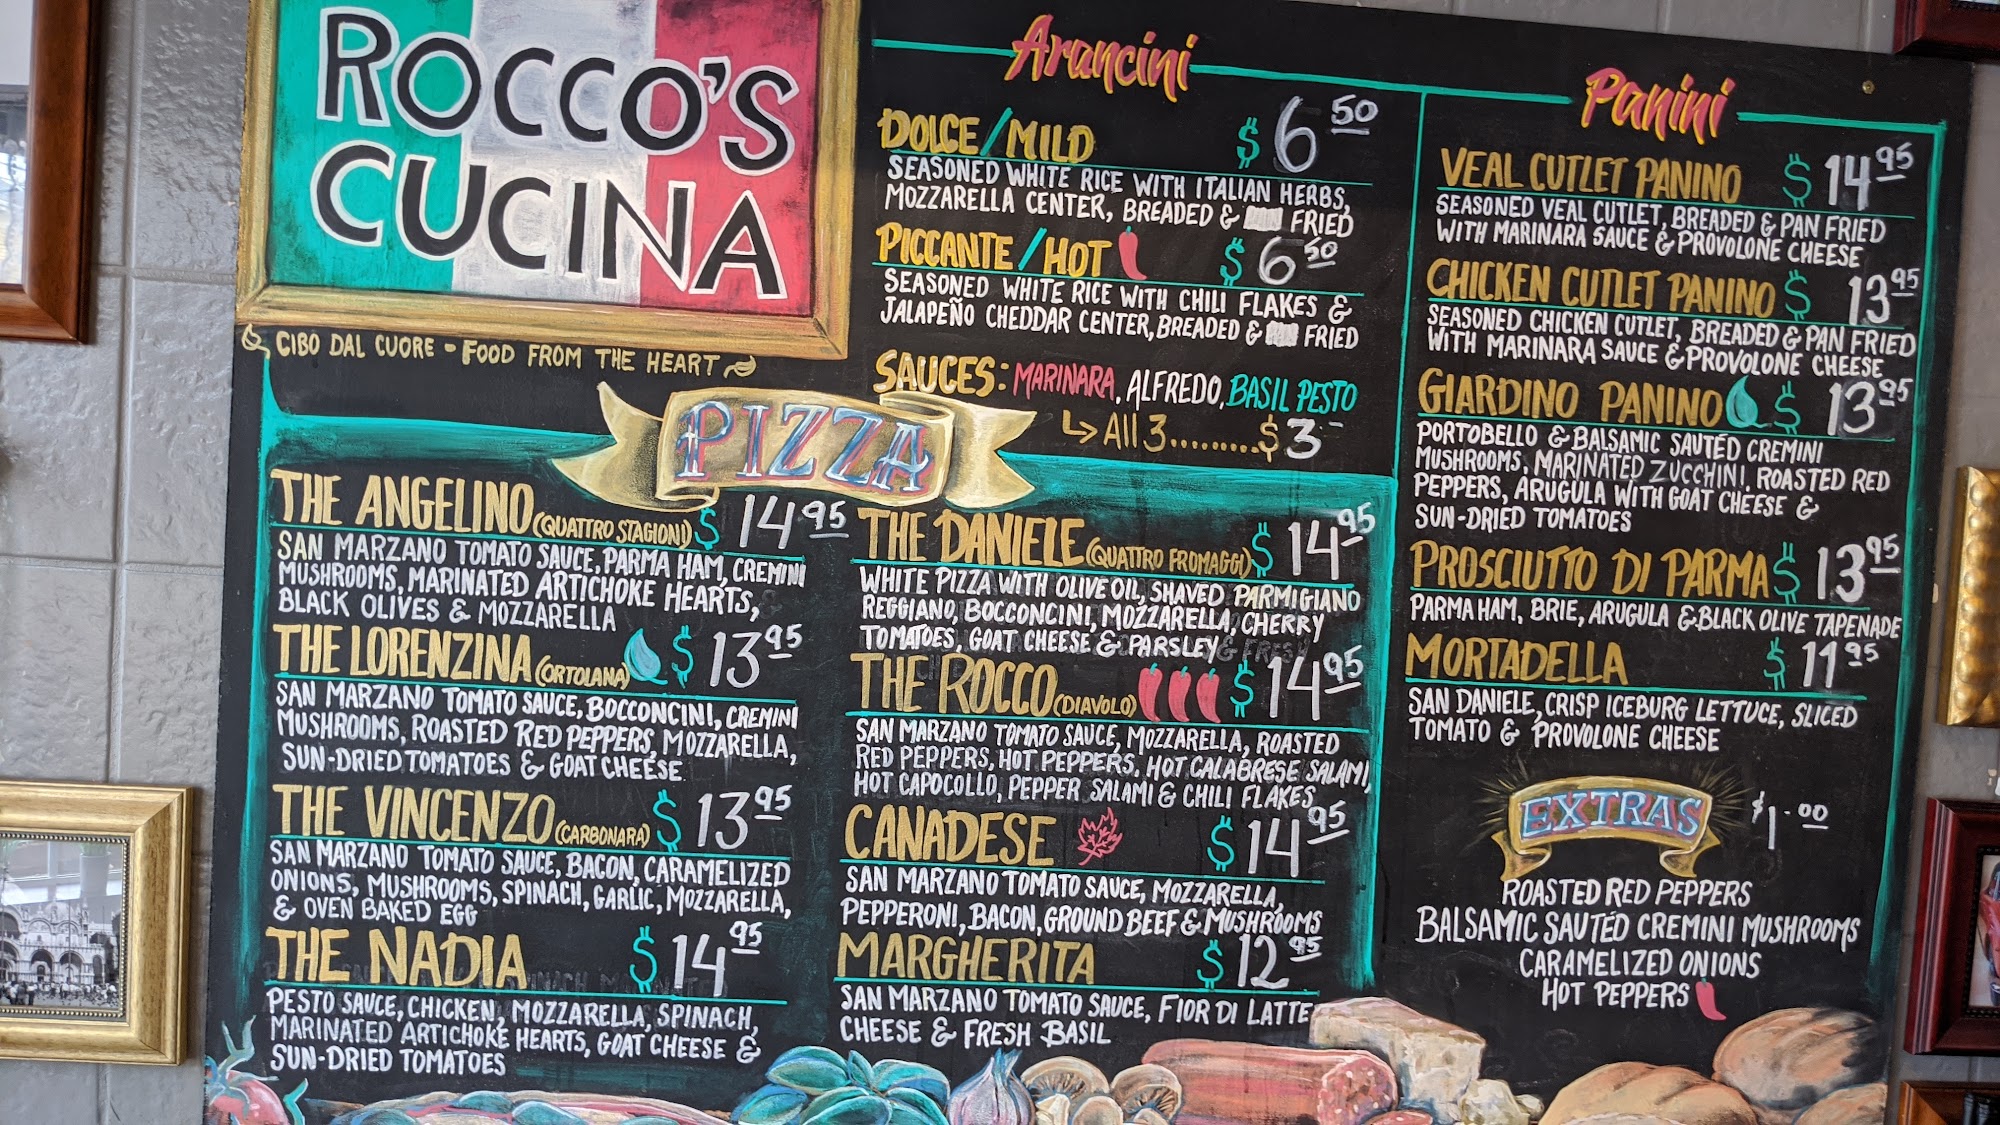 ROCCO'S
CUCINA
CIBO DAL CUORE - FOOD FROM THE HEART
Arancini
DOLCE/MILD $6.50
SEASONED WHITE RICE WITH ITALIAN HERBS,
MOZZARELLA CENTER, BREADED & FRIED
PICCANTE/HOT $6.50
SEASONED WHITE RICE WITH CHILI FLAKES &
JALAPEÑO CHEDDAR CENTER, BREADED & FRIED
SAUCES: MARINARA, ALFREDO, BASIL PESTO
All 3.........$3
PIZZA
THE ANGELINO (QUATTRO STAGIONI) $14.95
SAN MARZANO TOMATO SAUCE, PARMA HAM, CREMINI
MUSHROOMS, MARINATED ARTICHOKE HEARTS,
BLACK OLIVES & MOZZARELLA
THE LORENZINA (ORTOLANA) $13.95
SAN MARZANO TOMATO SAUCE, BOCCONCINI, CREMINI
MUSHROOMS, ROASTED RED PEPPERS, MOZZARELLA,
SUN-DRIED TOMATOES & GOAT CHEESE
THE VINCENZO (CARBONARA) $13.95
SAN MARZANO TOMATO SAUCE, BACON, CARAMELIZED
ONIONS, MUSHROOMS, SPINACH, GARLIC, MOZZARELLA,
& OVEN BAKED EGG
THE NADIA $14.95
PESTO SAUCE, CHICKEN, MOZZARELLA, SPINACH,
MARINATED ARTICHOKE HEARTS, GOAT CHEESE &
SUN-DRIED TOMATOES
THE DANIELE (QUATTRO FROMAGGI) $14.95
WHITE PIZZA WITH OLIVE OIL, SHAVED PARMIGIANO
REGGIANO, BOCCONCINI, MOZZARELLA, CHERRY
TOMATOES, GOAT CHEESE & PARSLEY
THE ROCCO (DIAVOLO) $14.95
SAN MARZANO TOMATO SAUCE, MOZZARELLA, ROASTED
RED PEPPERS, HOT PEPPERS, HOT CALABRESE SALAMI,
HOT CAPOCOLLO, PEPPER SALAMI & CHILI FLAKES
CANADESE $14.95
SAN MARZANO TOMATO SAUCE, MOZZARELLA,
PEPPERONI, BACON, GROUND BEEF & MUSHROOMS
MARGHERITA $12.95
SAN MARZANO TOMATO SAUCE, FIOR DI LATTE
CHEESE & FRESH BASIL
Panini
VEAL CUTLET PANINO $14.95
SEASONED VEAL CUTLET, BREADED & PAN FRIED
WITH MARINARA SAUCE & PROVOLONE CHEESE
CHICKEN CUTLET PANINO $13.95
SEASONED CHICKEN CUTLET, BREADED & PAN FRIED
WITH MARINARA SAUCE & PROVOLONE CHEESE
GIARDINO PANINO $13.95
PORTOBELLO & BALSAMIC SAUTÉD CREMINI
MUSHROOMS, MARINATED ZUCCHINI, ROASTED RED
PEPPERS, ARUGULA WITH GOAT CHEESE &
SUN-DRIED TOMATOES
PROSCIUTTO DI PARMA $13.95
PARMA HAM, BRIE, ARUGULA & BLACK OLIVE TAPENADE
MORTADELLA $11.95
SAN DANIELE, CRISP ICEBURG LETTUCE, SLICED
TOMATO & PROVOLONE CHEESE
EXTRAS $1.00
ROASTED RED PEPPERS
BALSAMIC SAUTÉD CREMINI MUSHROOMS
CARAMELIZED ONIONS
HOT PEPPERS